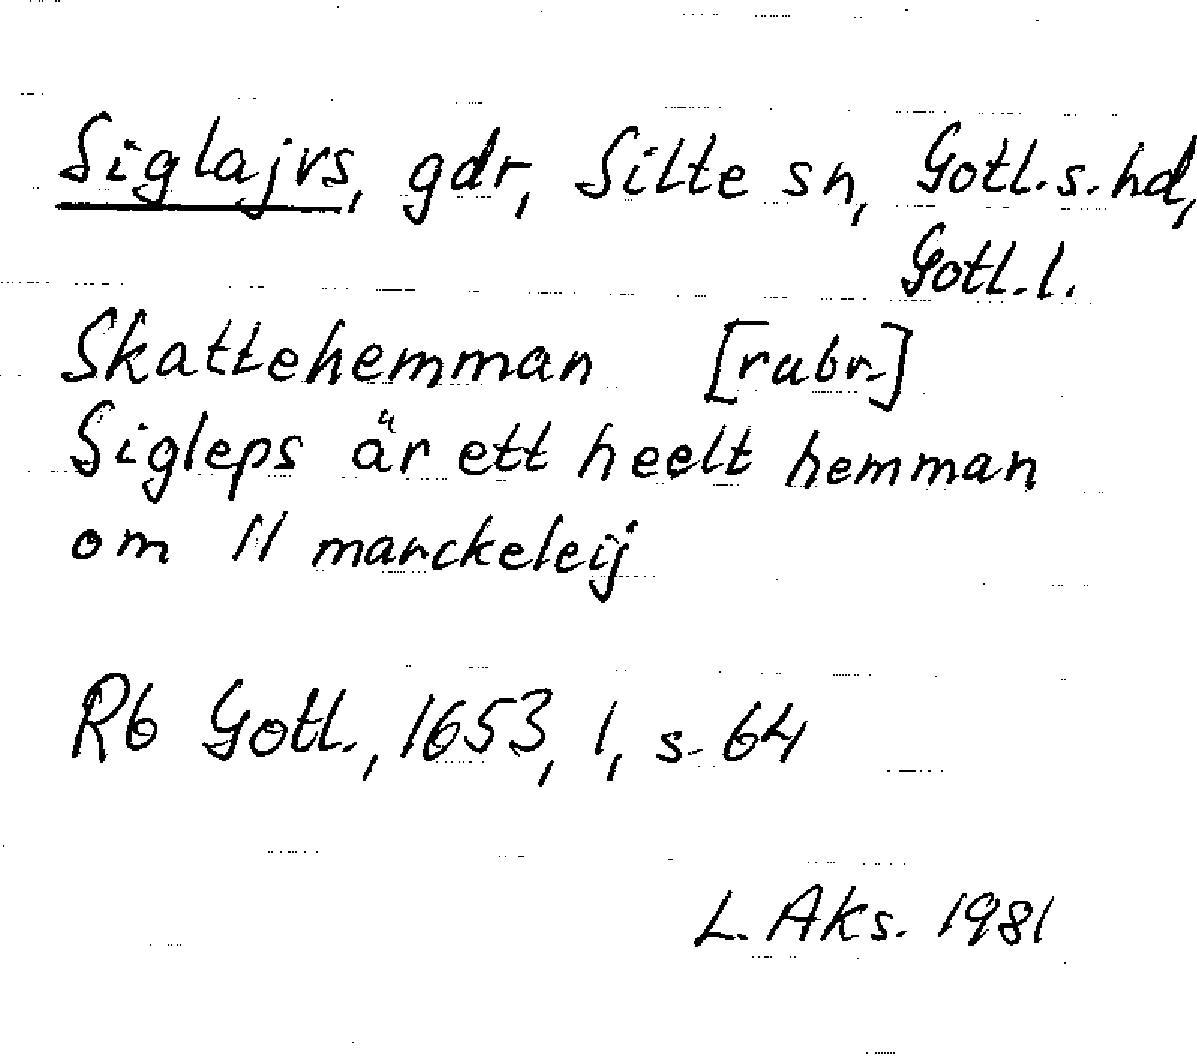 Siglajvs, gdr, Silte sn, Gotl. s. hd,
Gotl. l.
Skattehemman [rubr.]
Sigleps är ett heelt hemman
om 11 marckeleij
Rb Gotl., 1653, 1, s. 64
L. Aks. 1981